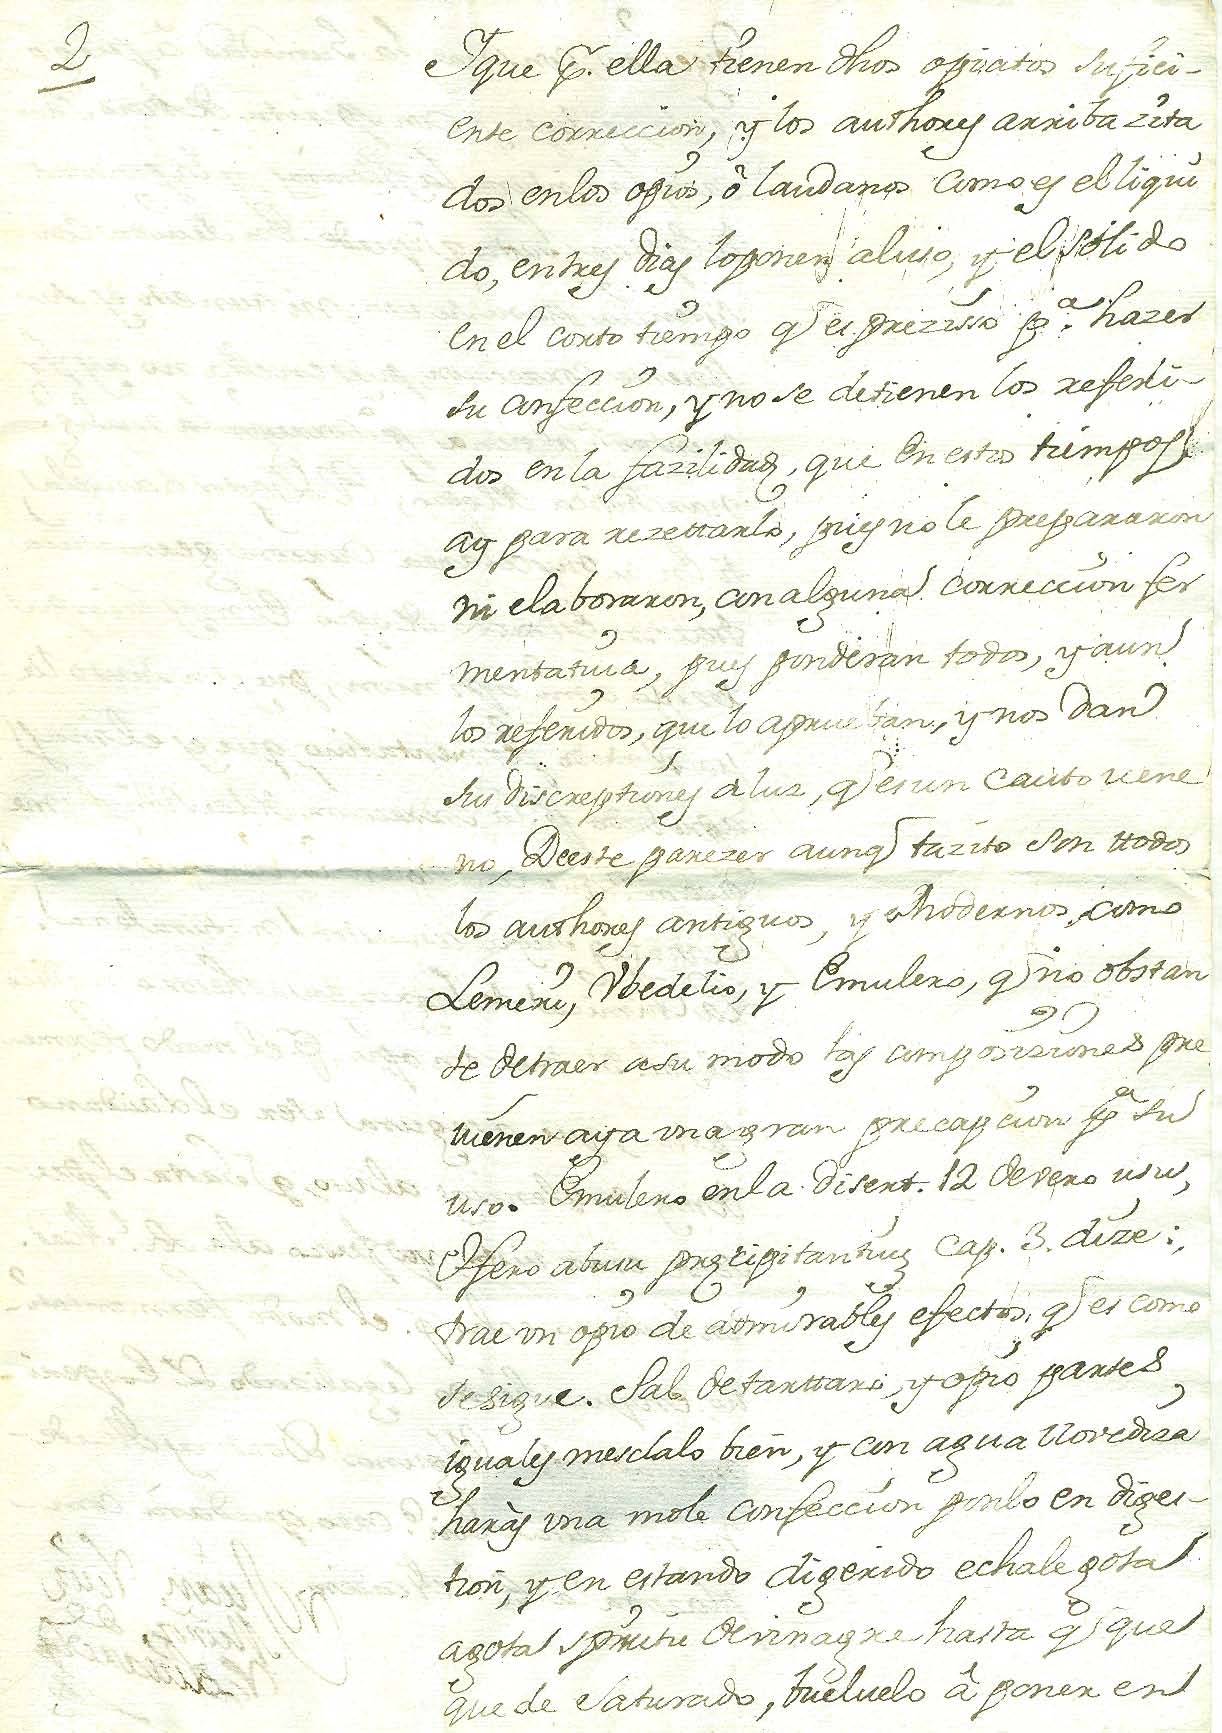 2
Y que pr. ella tienen dhos opiatos sufici-
ente correccion, y los authores arriba zita
dos en los opios, ô laudanos como es el liqui
do, en tres dias lo ponen al uso, y el sólido
en el corto tiempo q es prezisso pa. hazer
su confeccion, y no se detienen los referi-
dos en la fazilidad, que en estos tiempos
ay para rezettarlo, pues no le prepararon
ni elaboraron, con alguna correccion fer
mentativa, pues ponderan todos, y aun
los referidos, que lo aprueban, y nos dan
sus discreptiones a luz, q es un cauto vene
no, De este parezer aunq tazito son ttodos
los authores antiguos, y Modernos, como
Lemeri, Vbedelio, y Emulero, q no obstan
te detraer a su modo las composiziones pre
uienen aya una gran precapcion pa su
uso. Emulero en la disert. 12 de vero usu,
& fero abusu præcipitantiũ cap. 3. dize:,
trae vn opio de admirables efectos, q es como
se sigue. Sal de tarttaro, y opio partes
iguales mesclalo bien, y con agua llovediza
harás vna mole confeccion ponlo en diges-
tion, y en estando digerido echale gota
a gota spiritu de vinagre hasta q que
que de saturado, bueluelo â poner en